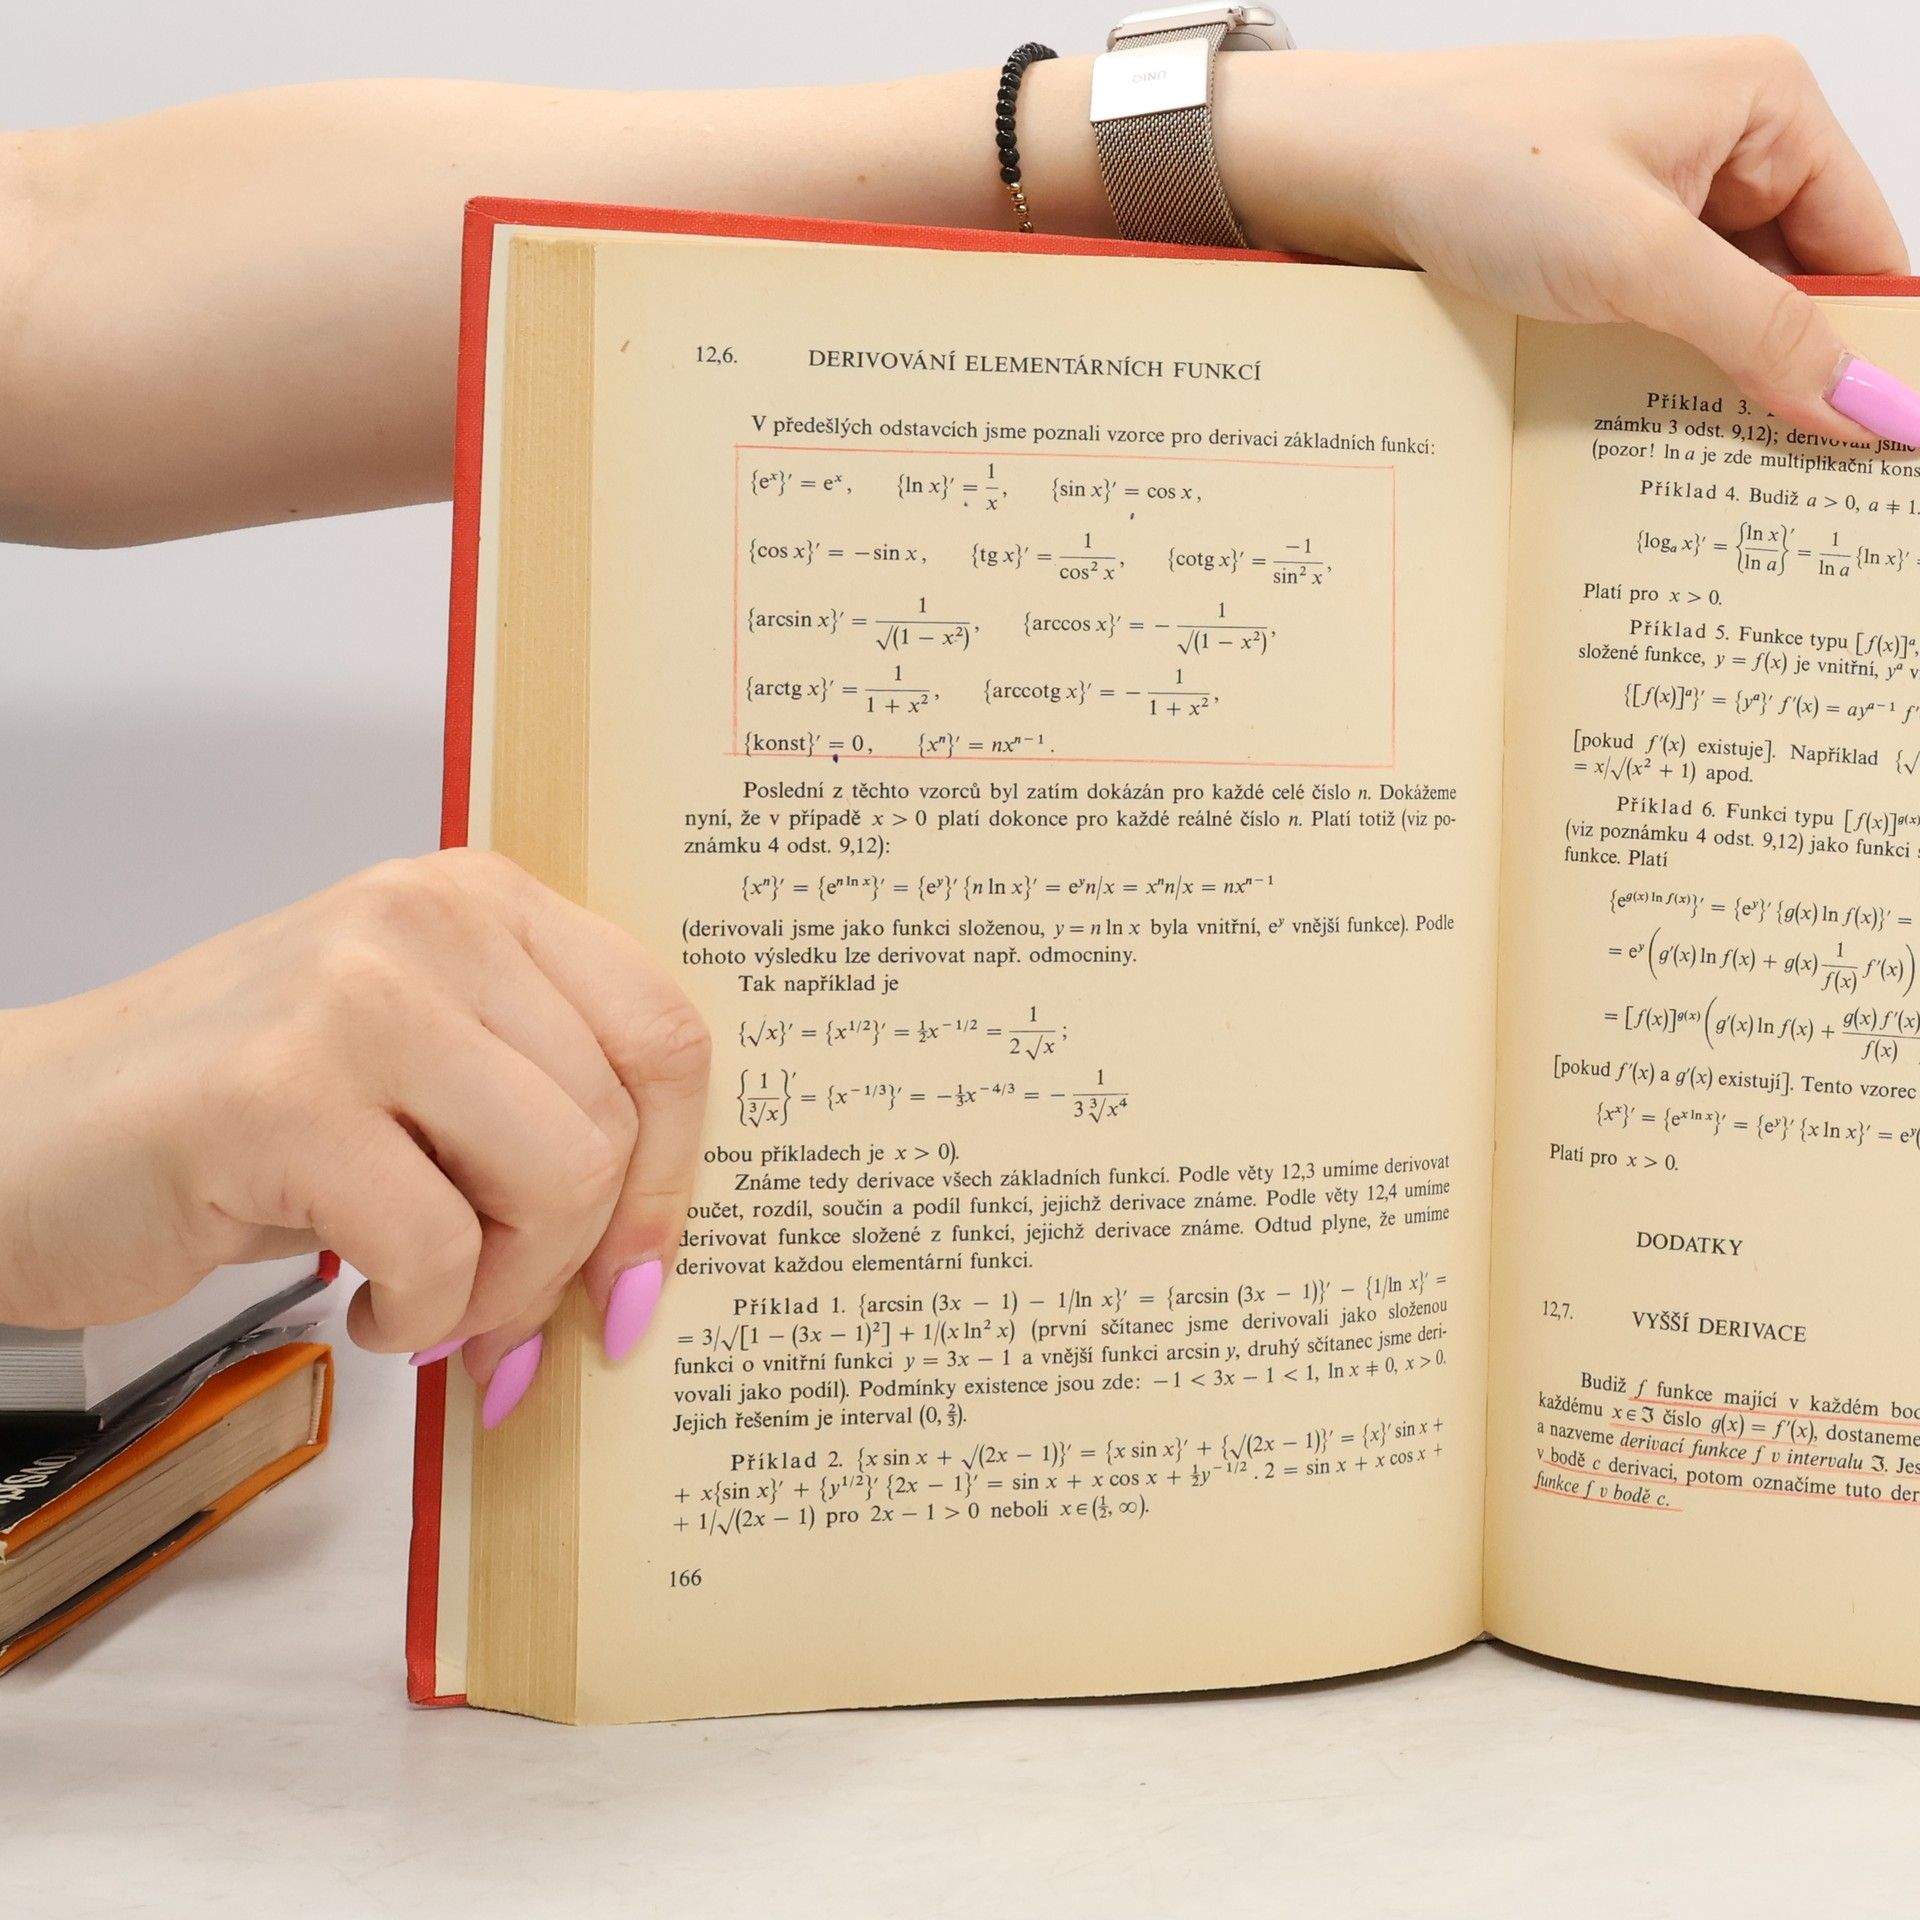 UNIQ
12,6. DERIVOVÁNÍ ELEMENTÁRNÍCH FUNKCÍ
V předešlých odstavcích jsme poznali vzorce pro derivaci základních funkcí:
{eˣ}′ = eˣ, {ln x}′ = 1/x, {sin x}′ = cos x,
{cos x}′ = −sin x, {tg x}′ = 1/cos² x, {cotg x}′ = −1/sin² x,
{arcsin x}′ = 1/√(1 − x²), {arccos x}′ = − 1/√(1 − x²),
{arctg x}′ = 1/(1 + x²), {arccotg x}′ = − 1/(1 + x²),
{konst}′ = 0, {xⁿ}′ = nxⁿ⁻¹.
Poslední z těchto vzorců byl zatím dokázán pro každé celé číslo n. Dokážeme
nyní, že v případě x > 0 platí dokonce pro každé reálné číslo n. Platí totiž (viz po-
známku 4 odst. 9,12):
{xⁿ}′ = {e^(n ln x)}′ = {eʸ}′ {n ln x}′ = eʸn/x = xⁿn/x = nxⁿ⁻¹
(derivovali jsme jako funkci složenou, y = n ln x byla vnitřní, eʸ vnější funkce). Podle
tohoto výsledku lze derivovat např. odmocniny.
Tak například je
{√x}′ = {x^(1/2)}′ = ½x^(−1/2) = 1/(2√x);
{1/∛x}′ = {x^(−1/3)}′ = −⅓x^(−4/3) = − 1/(3∛x⁴)
obou příkladech je x > 0).
Známe tedy derivace všech základních funkcí. Podle věty 12,3 umíme derivovat
oučet, rozdíl, součin a podíl funkcí, jejichž derivace známe. Podle věty 12,4 umíme
derivovat funkce složené z funkcí, jejichž derivace známe. Odtud plyne, že umíme
derivovat každou elementární funkci.
Příklad 1. {arcsin (3x − 1) − 1/ln x}′ = {arcsin (3x − 1)}′ − {1/ln x}′ =
= 3/√[1 − (3x − 1)²] + 1/(x ln² x) (první sčítanec jsme derivovali jako složenou
funkci o vnitřní funkci y = 3x − 1 a vnější funkci arcsin y, druhý sčítanec jsme deri-
vovali jako podíl). Podmínky existence jsou zde: −1 < 3x − 1 < 1, ln x ≠ 0, x > 0.
Jejich řešením je interval (0, ⅔).
Příklad 2. {x sin x + √(2x − 1)}′ = {x sin x}′ + {√(2x − 1)}′ = {x}′ sin x +
+ x{sin x}′ + {y^(1/2)}′ {2x − 1}′ = sin x + x cos x + ½y^(−1/2) . 2 = sin x + x cos x +
+ 1/√(2x − 1) pro 2x − 1 > 0 neboli x ∈ (½, ∞).
166
Příklad 3.
známku 3 odst. 9,12); derivovali jsme
(pozor! ln a je zde multiplikační kons
Příklad 4. Budiž a > 0, a ≠ 1.
{logₐ x}′ = {ln x/ln a}′ = 1/ln a {ln x}′ =
Platí pro x > 0.
Příklad 5. Funkce typu [f(x)]ᵃ,
složené funkce, y = f(x) je vnitřní, yᵃ v
{[f(x)]ᵃ}′ = {yᵃ}′ f′(x) = ayᵃ⁻¹ f′
[pokud f′(x) existuje]. Například {√
= x/√(x² + 1) apod.
Příklad 6. Funkci typu [f(x)]^g(x)
(viz poznámku 4 odst. 9,12) jako funkci s
funkce. Platí
{e^(g(x) ln f(x))}′ = {eʸ}′ {g(x) ln f(x)}′ =
= eʸ (g′(x) ln f(x) + g(x) 1/f(x) f′(x))
= [f(x)]^g(x) (g′(x) ln f(x) + g(x) f′(x)/f(x)
[pokud f′(x) a g′(x) existují]. Tento vzorec
{xˣ}′ = {e^(x ln x)}′ = {eʸ}′ {x ln x}′ = eʸ(
Platí pro x > 0.
DODATKY
12,7. VYŠŠÍ DERIVACE
Budiž f funkce mající v každém bod
každému x ∈ ℑ číslo g(x) = f′(x), dostaneme
a nazveme derivací funkce f v intervalu ℑ. Jes
v bodě c derivaci, potom označíme tuto der
funkce f v bodě c.